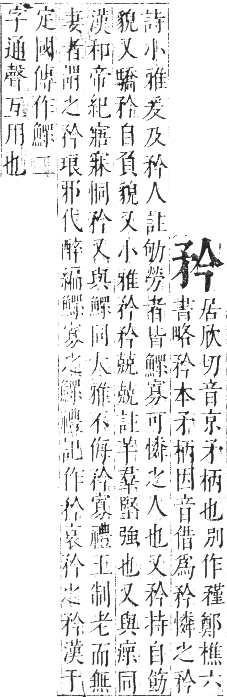 矜
居欣切音京矛柄也別作𥎊鄭樵六
書略矜本矛柄因音借爲矜憐之矜
詩小雅爰及矜人註劬勞者皆鰥寡可憐之人也又矜持自飭
貌又驕矜自負貌又小雅矜矜兢兢註羊羣堅強也又與瘝同
漢和帝紀寤寐恫矜又與鰥同大雅不侮矜寡禮王制老而無
妻者謂之矜琅邪代醉編鰥寡之鰥禮記作矜哀矜之矜漢于
定國傳作鰥二
字通聲互用也